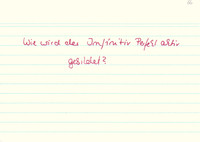 Wie wird der Infinitiv Perfekt Aktiv
gebildet?